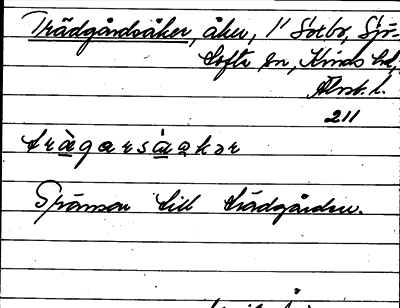 Trädgårdsåker, åker, 1" Sotbo, Sjö-
tofta sn, Kinds hd,
Älvsb. l.
211
trägarsåkar
Gränsar till trädgården.